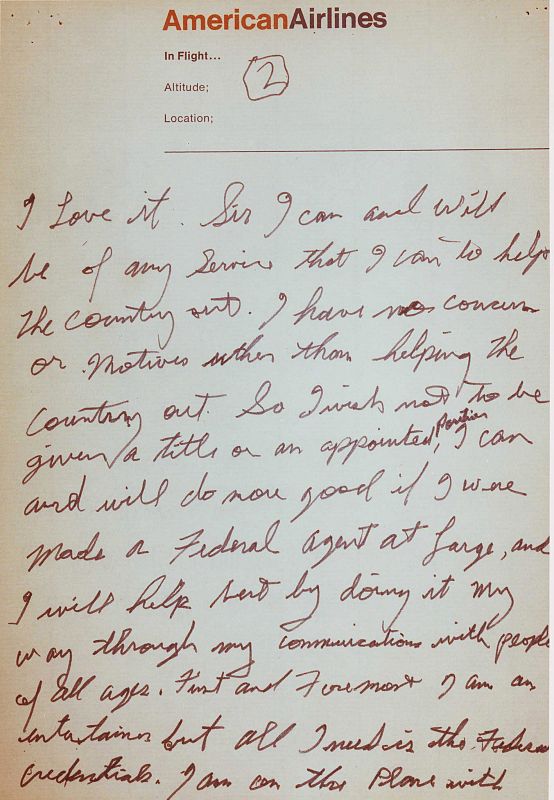 AmericanAirlines
In Flight...
Altitude;
2
Location;
I Love it. Sir I can and will
be of any Service that I can to help
the country out. I have no concern
or motives other than helping the
country out. So I wish not to be
given a title or an appointed position, I can
and will do more good if I were
made a Federal Agent at Large, and
I will help best by doing it my
way through my communications with people
of all ages. First and Foremost I am an
entertainer but all I need is the Federal
Credentials. I am on the Plane with